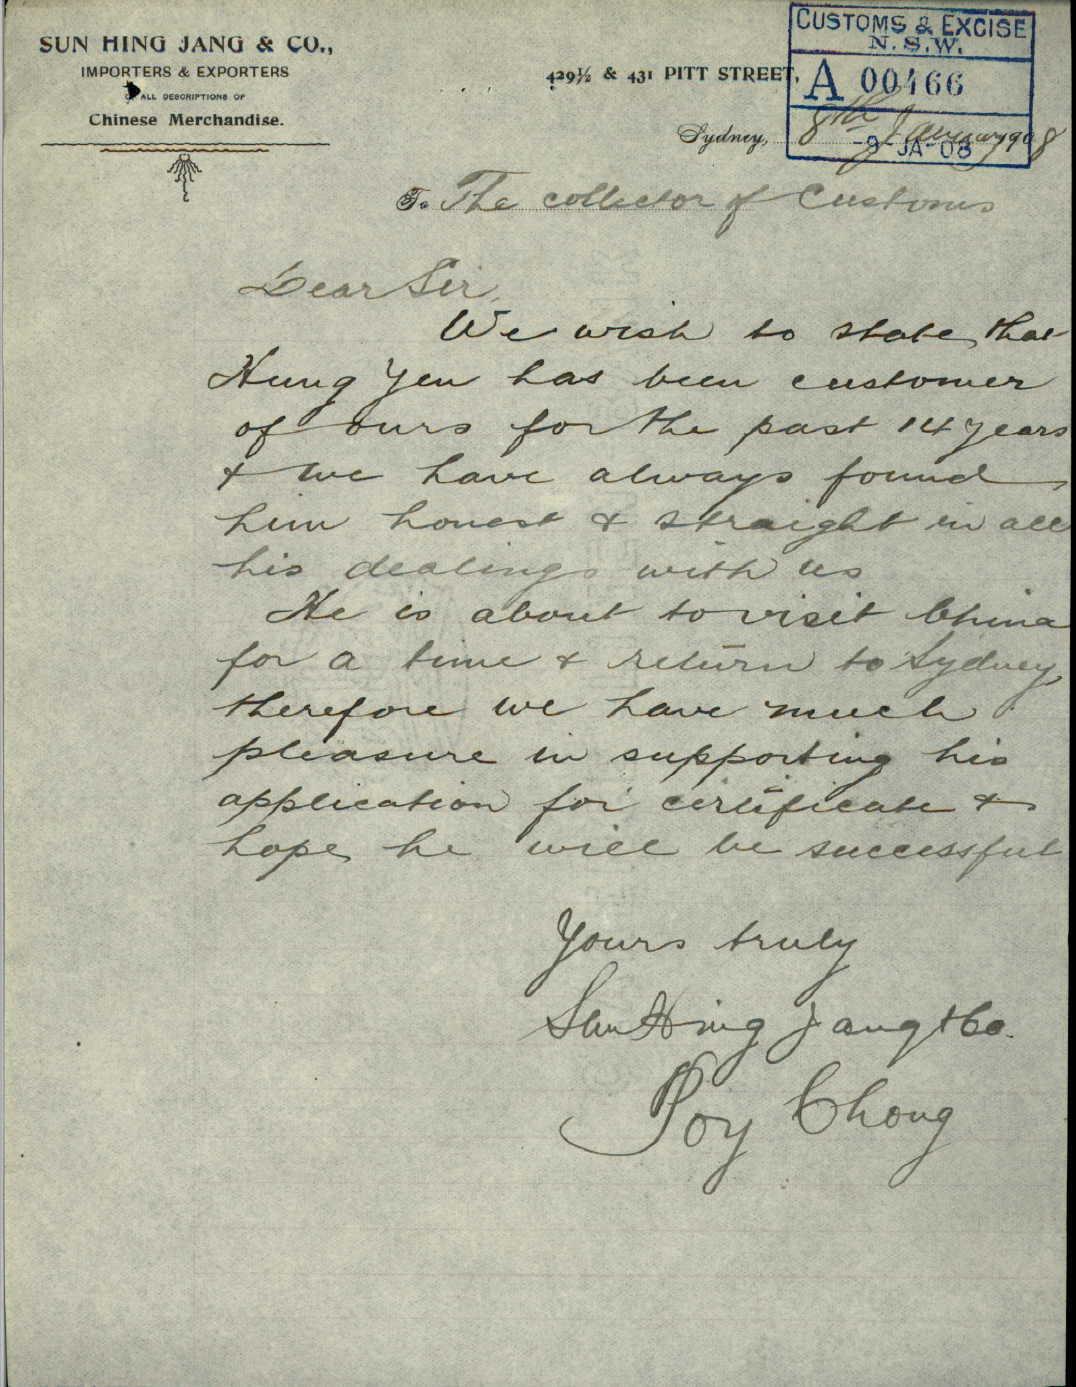 SUN HING JANG & CO.,
IMPORTERS & EXPORTERS
OF ALL DESCRIPTIONS OF
Chinese Merchandise.
429½ & 431 PITT STREET,
CUSTOMS & EXCISE
N.S.W.
A 00466
-9 JA-08
Sydney, 8th January 1908
To The collector of Customs
Dear Sir,
We wish to state that
Hung Yen has been customer
of ours for the past 14 years
& we have always found
him honest & straight in all
his dealings with us
He is about to visit China
for a time & return to Sydney,
therefore we have much
pleasure in supporting his
application for certificate &
hope he will be successful
Yours truly
Sun Hing Jang & Co.
Poy Chong